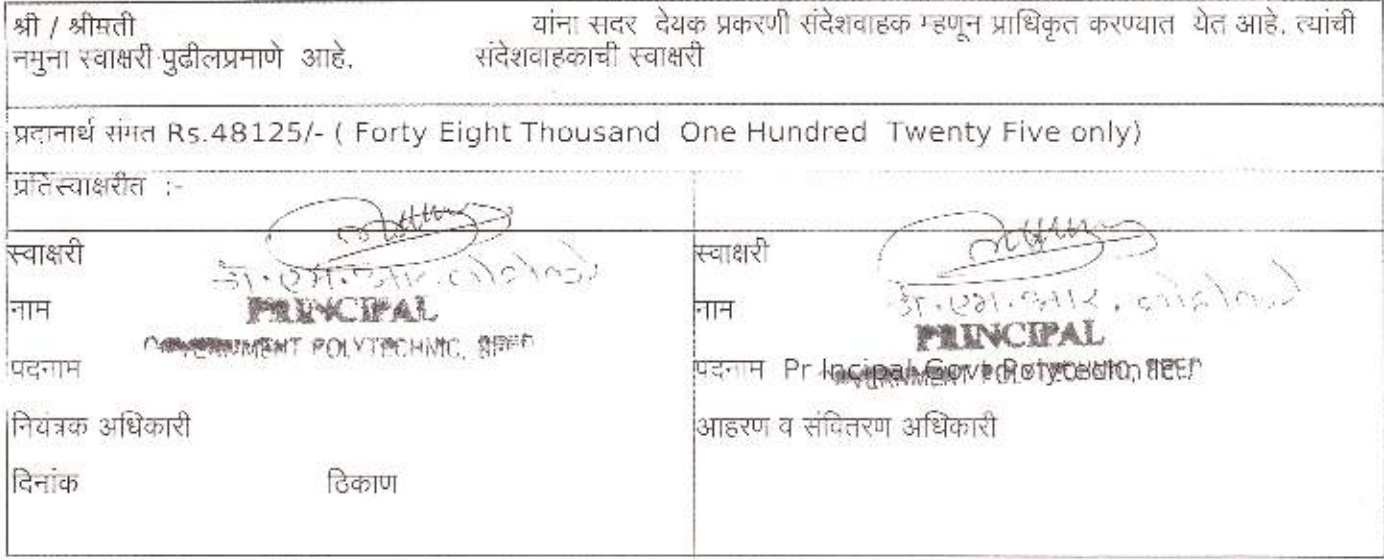 श्री / श्रीमती यांना सदर देयक प्रकरणी संदेशवाहक म्हणून प्राधिकृत करण्यात येत आहे. त्यांची
नमुना स्वाक्षरी पुढीलप्रमाणे आहे. संदेशवाहकाची स्वाक्षरी
प्रदानार्थ संमत Rs.48125/- ( Forty Eight Thousand One Hundred Twenty Five only)
प्रतिस्वाक्षरीत :-
स्वाक्षरी
नाम
PRINCIPAL
GOVERNMENT POLYTECHNIC, BEED
पदनाम
नियंत्रक अधिकारी
दिनांक ठिकाण
स्वाक्षरी
नाम
PRINCIPAL
पदनाम Pr Incipal Govt Polytechnic
आहरण व संवितरण अधिकारी